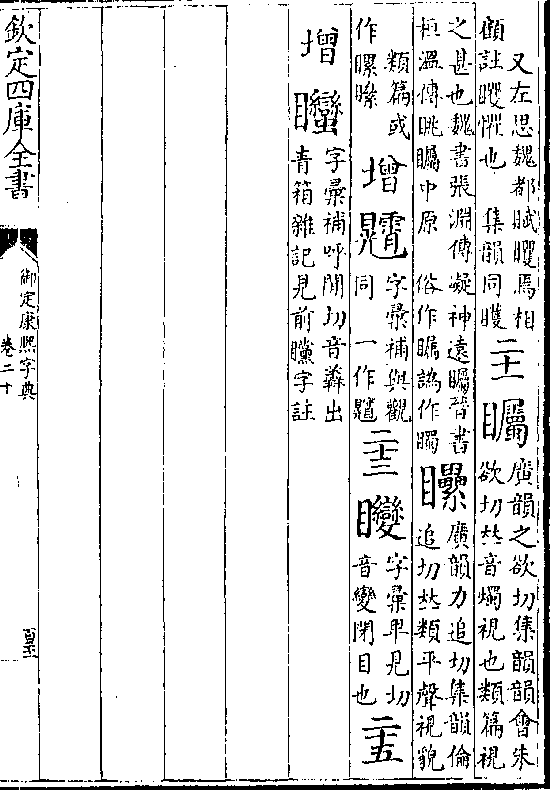 又左思魏都賦矆焉相
顧註矆惈也　集韻同矆
二十一
矚
廣韻之欲切集韻韻會朱
欲切𠀤音燭視也類篇視
之甚也魏書張淵傳凝神遠矚晉書
桓溫傳眺矚中原　俗作瞩譌作矙
廣韻力追切集韻倫
追切𠀤類平聲視貌
類篇或
作瞟
增
字彙補與觀
同　一作
二十三
字彙畢見切
音變閉目也
二十五
增
字彙補呼關切音犇出
青箱雜記見前矘字註
欽定四庫全書
御定康熙字典
卷二十